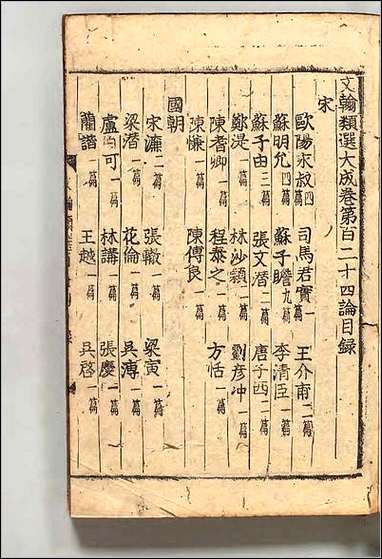 文翰類選大成卷第百二十四論目録
宋
歐陽永叔四篇 司馬君實一篇 王介甫二篇
蘇明允四篇 蘇子瞻九篇 李清臣一篇
蘇子由三篇 張文潛二篇 唐子西二篇
鄭湜一篇 林少穎一篇 劉彦冲一篇
陳耆卿一篇 程泰之一篇 方恬一篇
陳慊一篇 陳傅良一篇
國朝
宋濂二篇 張轍一篇 梁寅一篇
梁潛一篇 花倫一篇 吳溥一篇
盧可一篇 林講一篇 張慶一篇
藺諧一篇 王越一篇 吳啓一篇